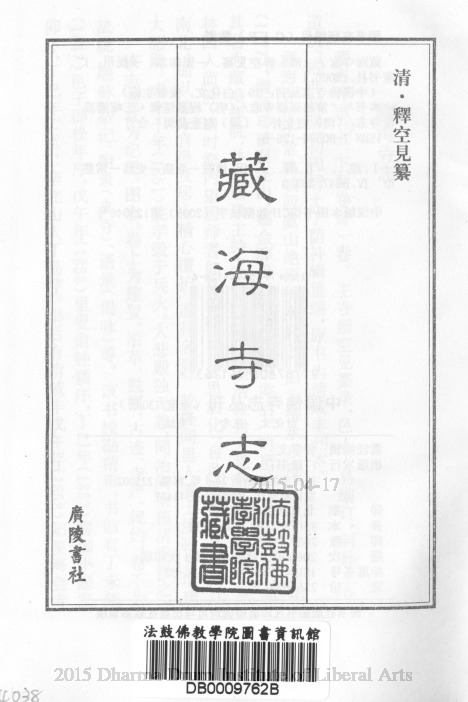 清·釋空見纂
藏海寺志
2015-04-17
法鼓佛
教學院
藏書
廣陵書社
法鼓佛教學院圖書資訊館
2015 Dharma Drum Institute of Liberal Arts
DB0009762B